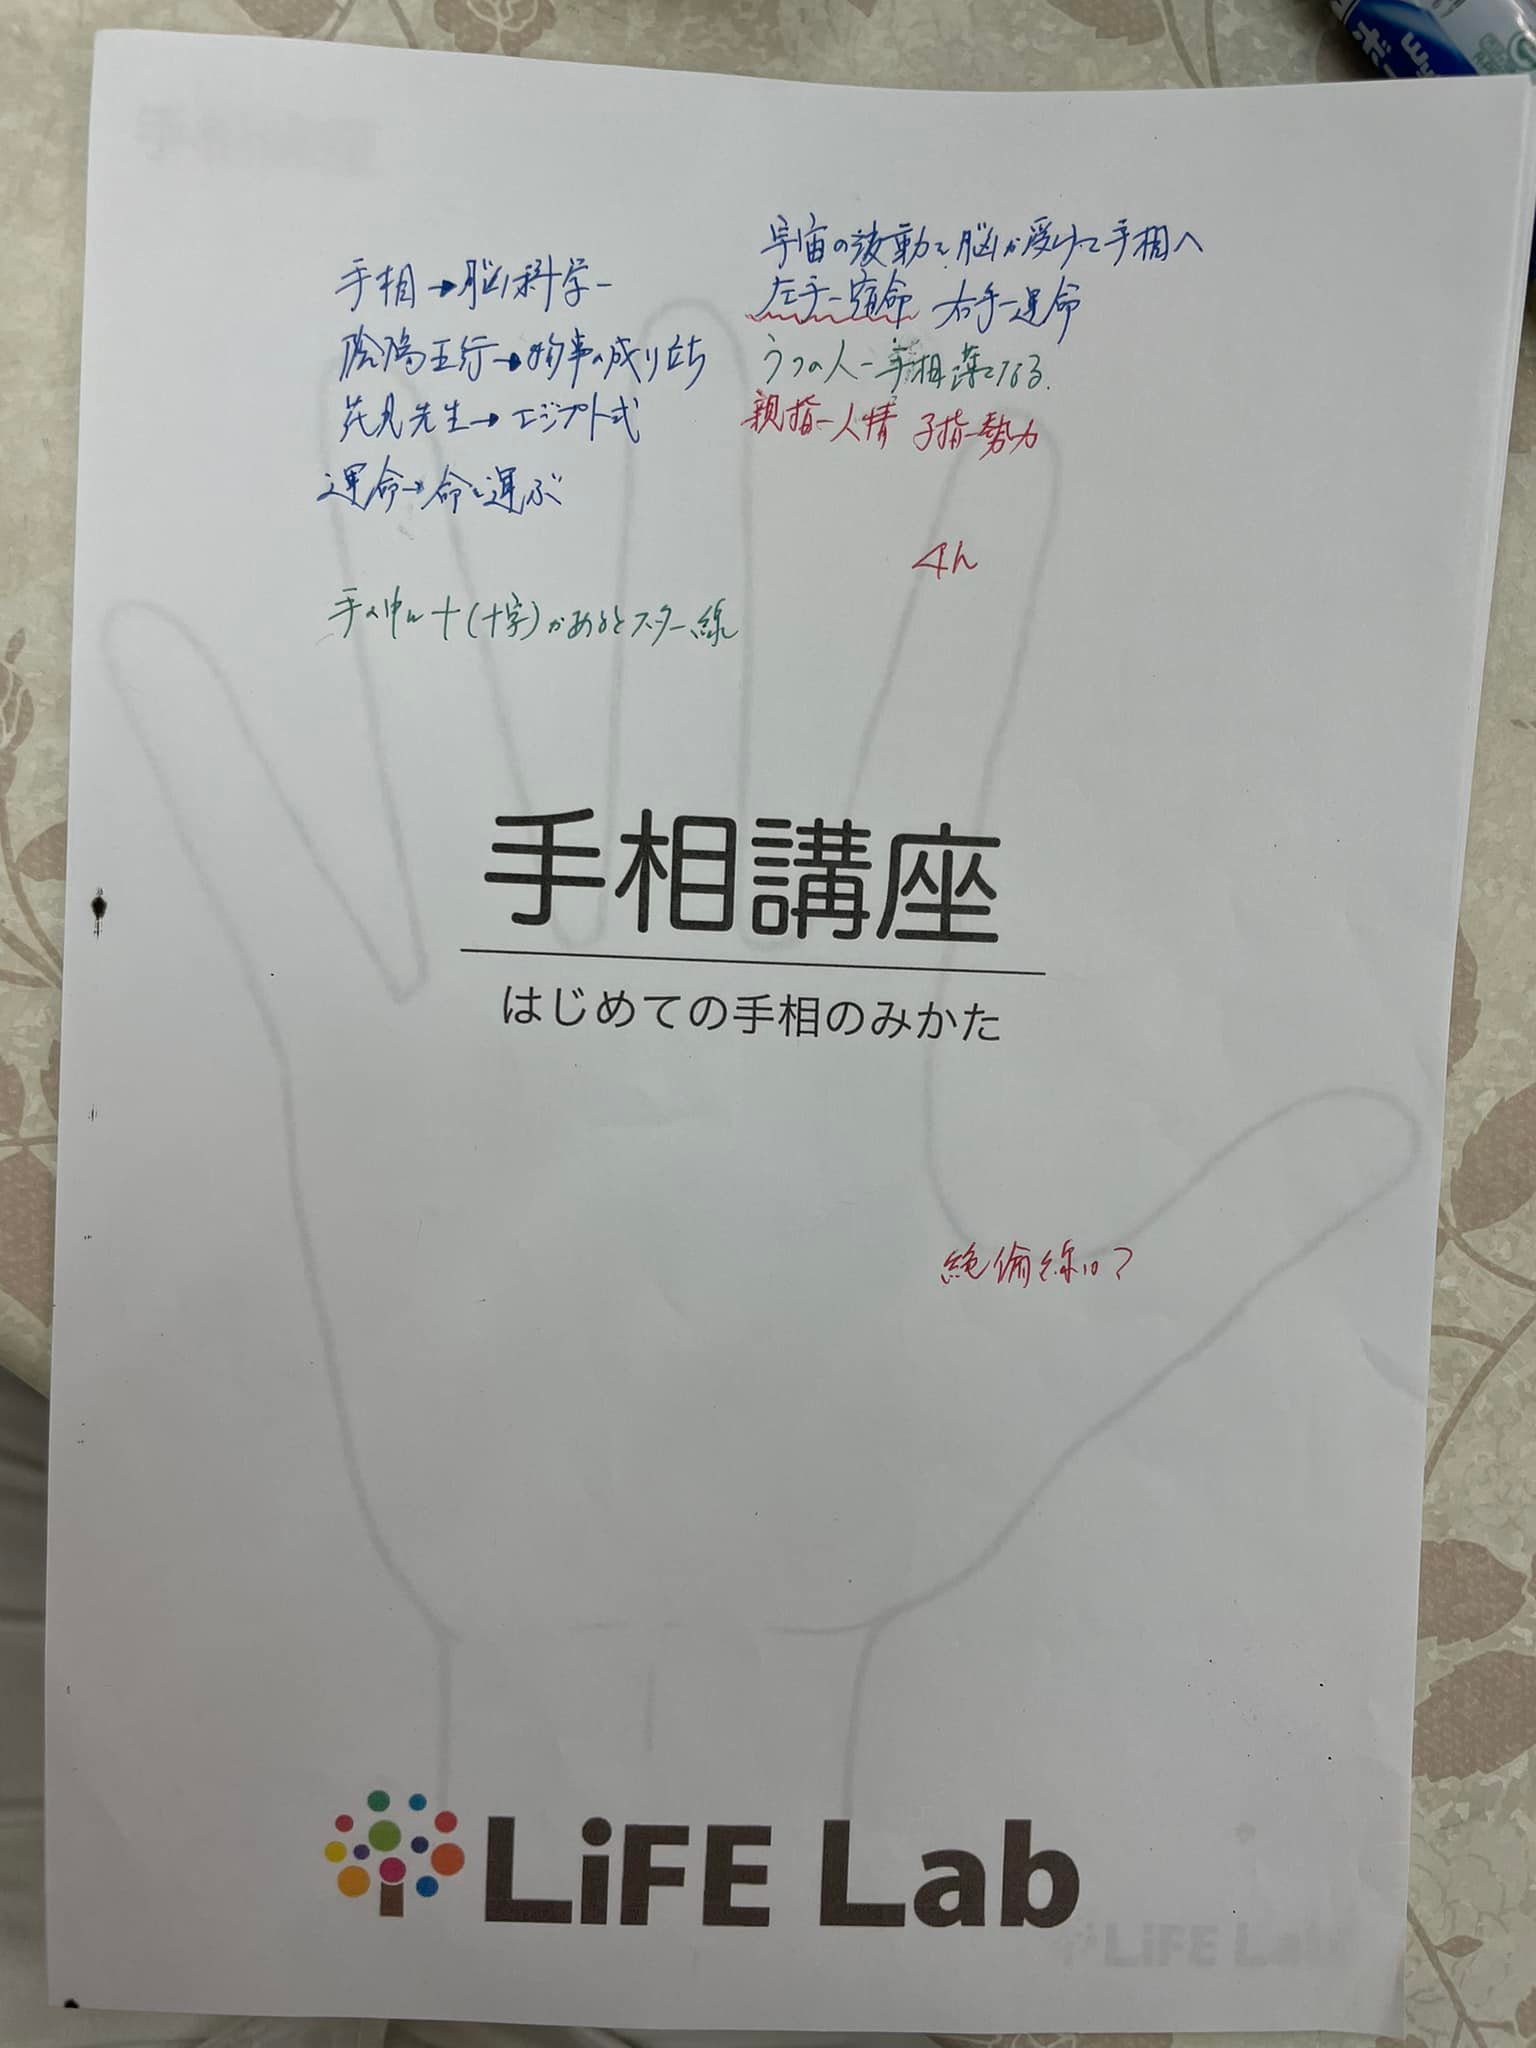 手相→脳科学-
陰陽五行→物事の成り立ち
花見先生→エジプト式
運命→命を運ぶ
手の中に十(十字)があるとスター線
宇宙の波動を脳が受けて手相へ
左手-宿命 右手-運命
うつの人-手相薄くなる.
親指-人情 子指-勢力
絶倫線は?
手相講座
はじめての手相のみかた
LiFE Lab